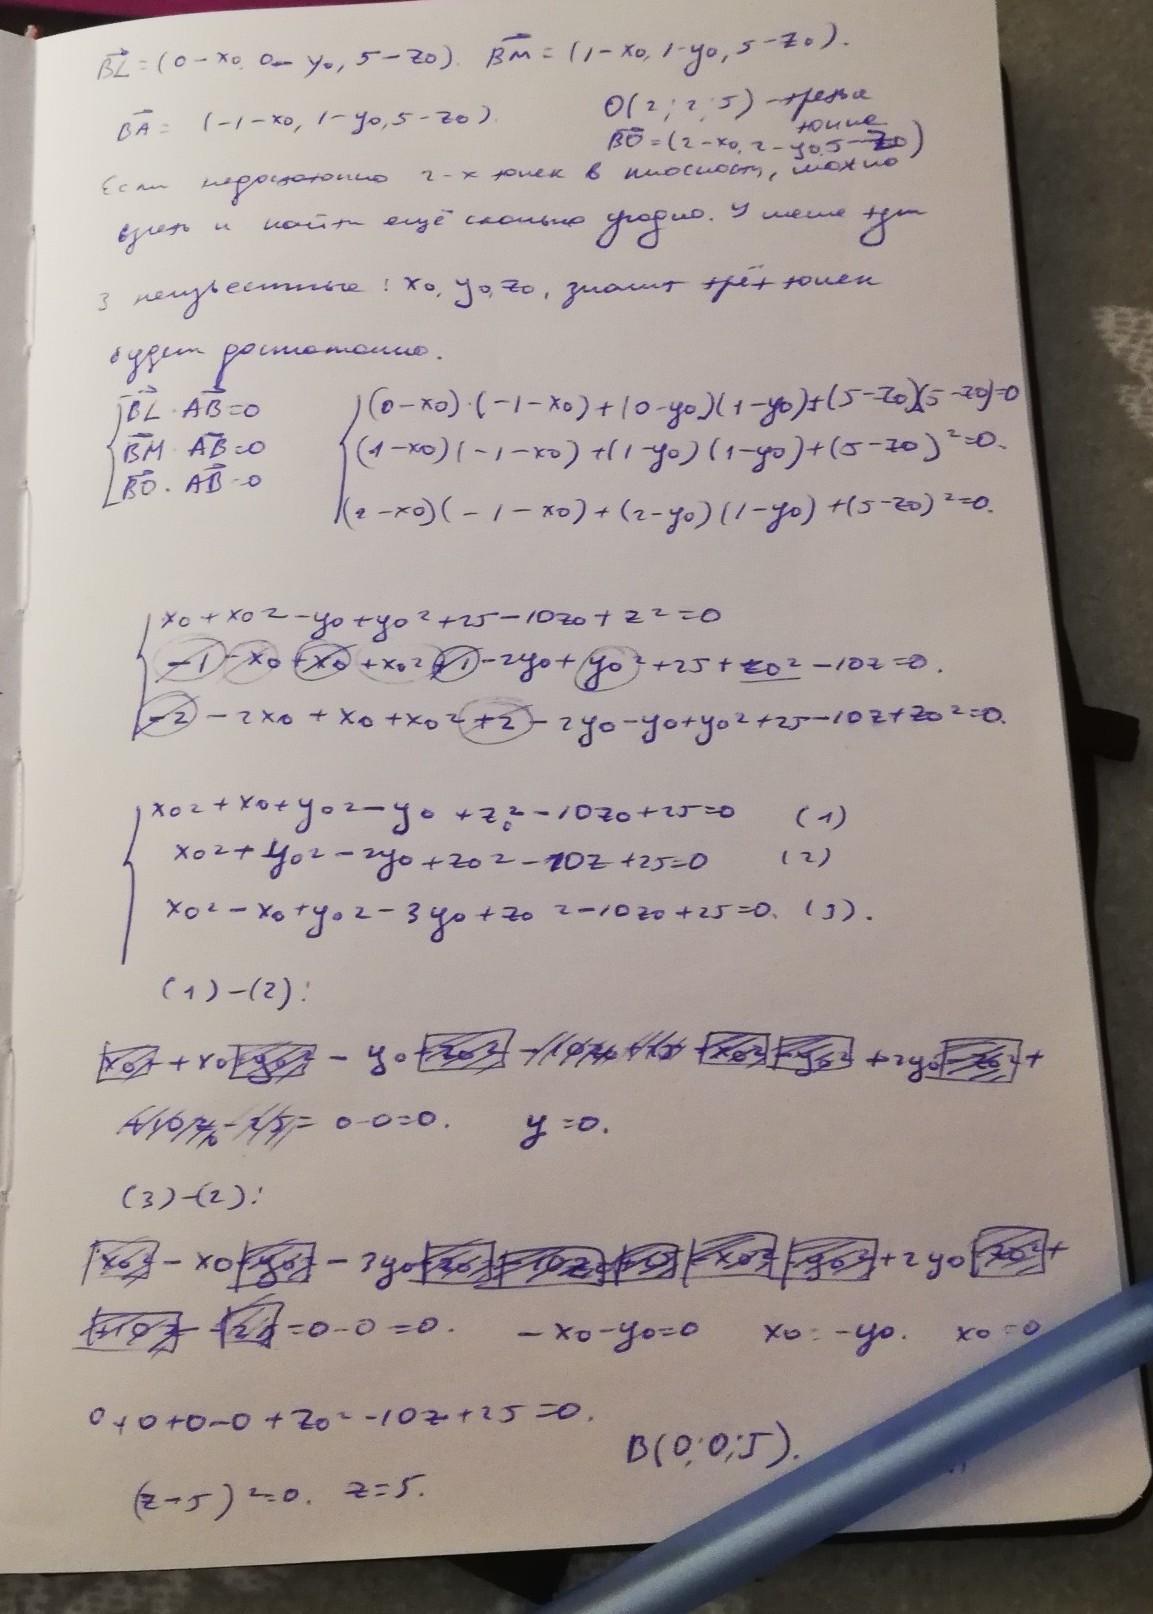 BL = (0-x0, 0-y0, 5-z0). BM = (1-x0, 1-y0, 5-z0).
BA = (-1-x0, 1-y0, 5-z0). O(2; 2; 5) - третья
точка
BO = (2-x0, 2-y0, 5-z0)
Если недостаточно 2-х точек в плоскости, можно
взять и найти ещё сколько угодно. У меня тут
3 неизвестные: x0, y0, z0, значит трёх точек
будет достаточно.
BL · AB=0 (0-x0)·(-1-x0)+(0-y0)(1-y0)+(5-z0)(5-z0)=0
BM · AB=0 (1-x0)(-1-x0)+(1-y0)(1-y0)+(5-z0)²=0.
BO · AB=0 (2-x0)(-1-x0)+(2-y0)(1-y0)+(5-z0)²=0.
x0+x0²-y0+y0²+25-10z0+z²=0
-1-x0+x0+x0²+1-2y0+y0²+25+z0²-10z=0.
-2-2x0+x0+x0²+2-2y0-y0+y0²+25-10z+z0²=0.
x0²+x0+y0²-y0+z0²-10z0+25=0 (1)
x0²+y0²-2y0+z0²-10z+25=0 (2)
x0²-x0+y0²-3y0+z0²-10z0+25=0. (3).
(1)-(2):
x0²+x0+y0²-y0+z0²-10z0+25-x0²-y0²+2y0-z0²+
+10z0-25=0-0=0. y=0.
(3)-(2):
x0²-x0+y0²-3y0+z0²-10z0+25-x0²-y0²+2y0-z0²+
+10z-25=0-0=0. -x0-y0=0 x0=-y0. x0=0
0+0+0-0+z0²-10z+25=0.
B(0;0;5).
(z-5)²=0. z=5.